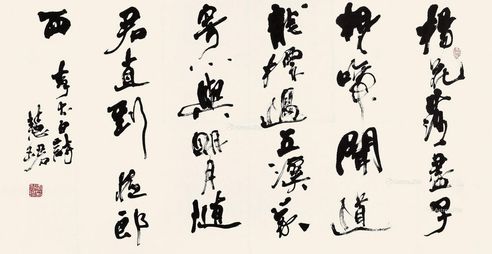 楊花落盡子
規啼聞道
龍標過五溪我
寄心與明月隨
君直到夜郎
西
李太白詩
慧珺